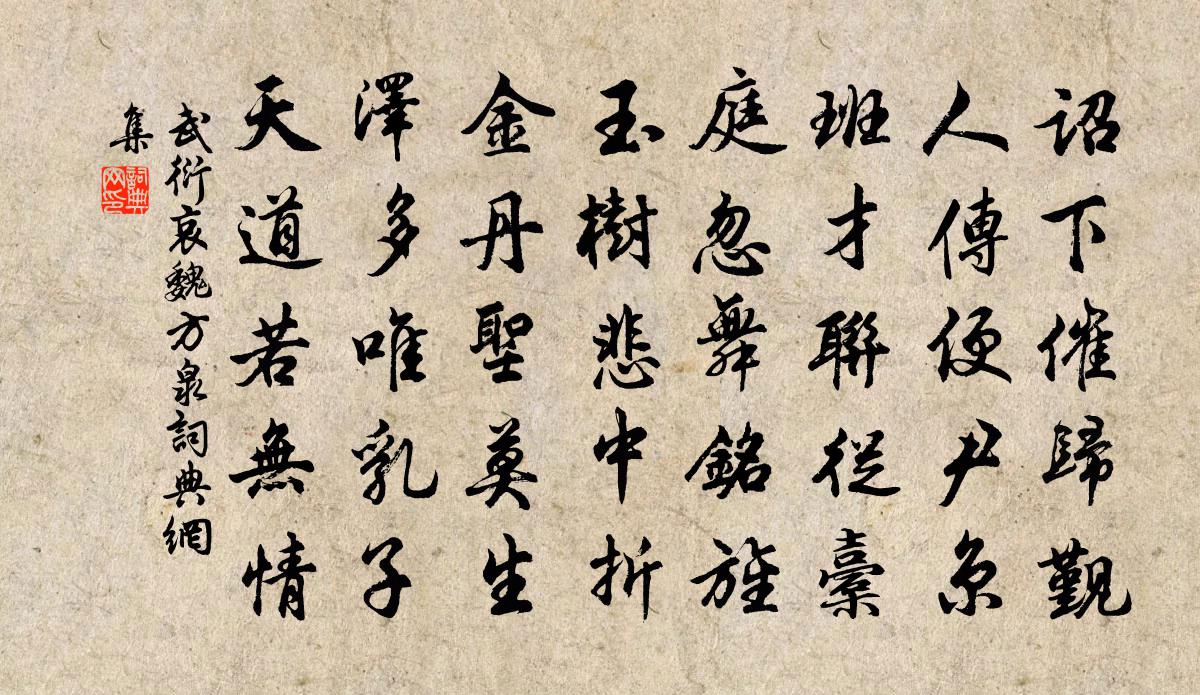 詔下催歸覲
人傳便尹京
班才聯從橐
庭忽舞銘旌
玉樹悲中折
金丹聖莫生
澤多唯乳子
天道若無情
武衍哀魏方泉詞典網
集
詞典
网印